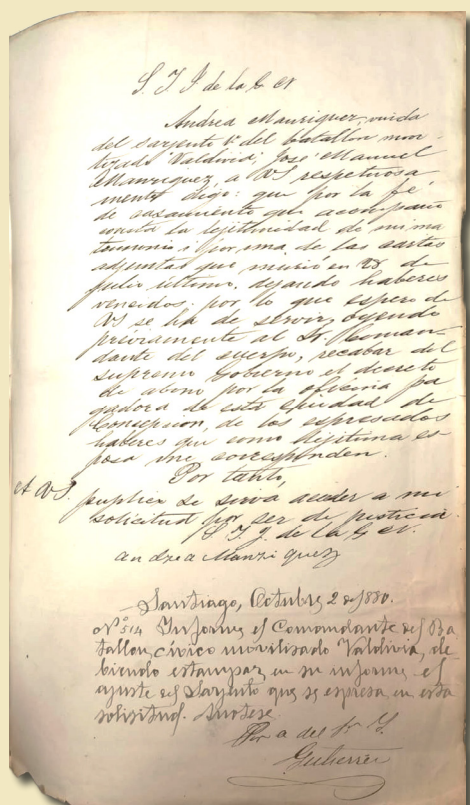 S. I. J. de la G. N.
Andrea Manriquez, viuda
del Sarjento 1º del batallon mov-
lizado Valdivia, José Manuel
Manriquez, a VS respetuosa
mente digo: que por la fé
de casamiento que acompaño
consta la lejitimidad de mi ma
trimonio i por una de las cartas
adjuntas que murió en 28 de
julio último, dejando haberes
vencidos; por lo que espero de
VS se ha de servir, oyendo
préviamente al Sr. Coman-
dante del cuerpo, recabar del
Supremo Gobierno el decreto
de abono por la oficina pa
gadora de esta ciudad de
Concepcion, de los espresados
haberes que como lejitima es
posa me corresponden.
Por tanto,
A VS. suplico se sirva acceder a mi
solicitud por ser de justicia
S. I. J. de la G. N.
andrea Manriquez
Santiago, Octubre 2 de 1880.
Nº 514 Informe el Comandante del Ba
tallon cívico movilizado Valdivia, de
biendo estampar en su informe el
ajuste del Sarjento que se espresa en esta
solicitud. Anótese
P. a del Sr. I.
Gutierrez